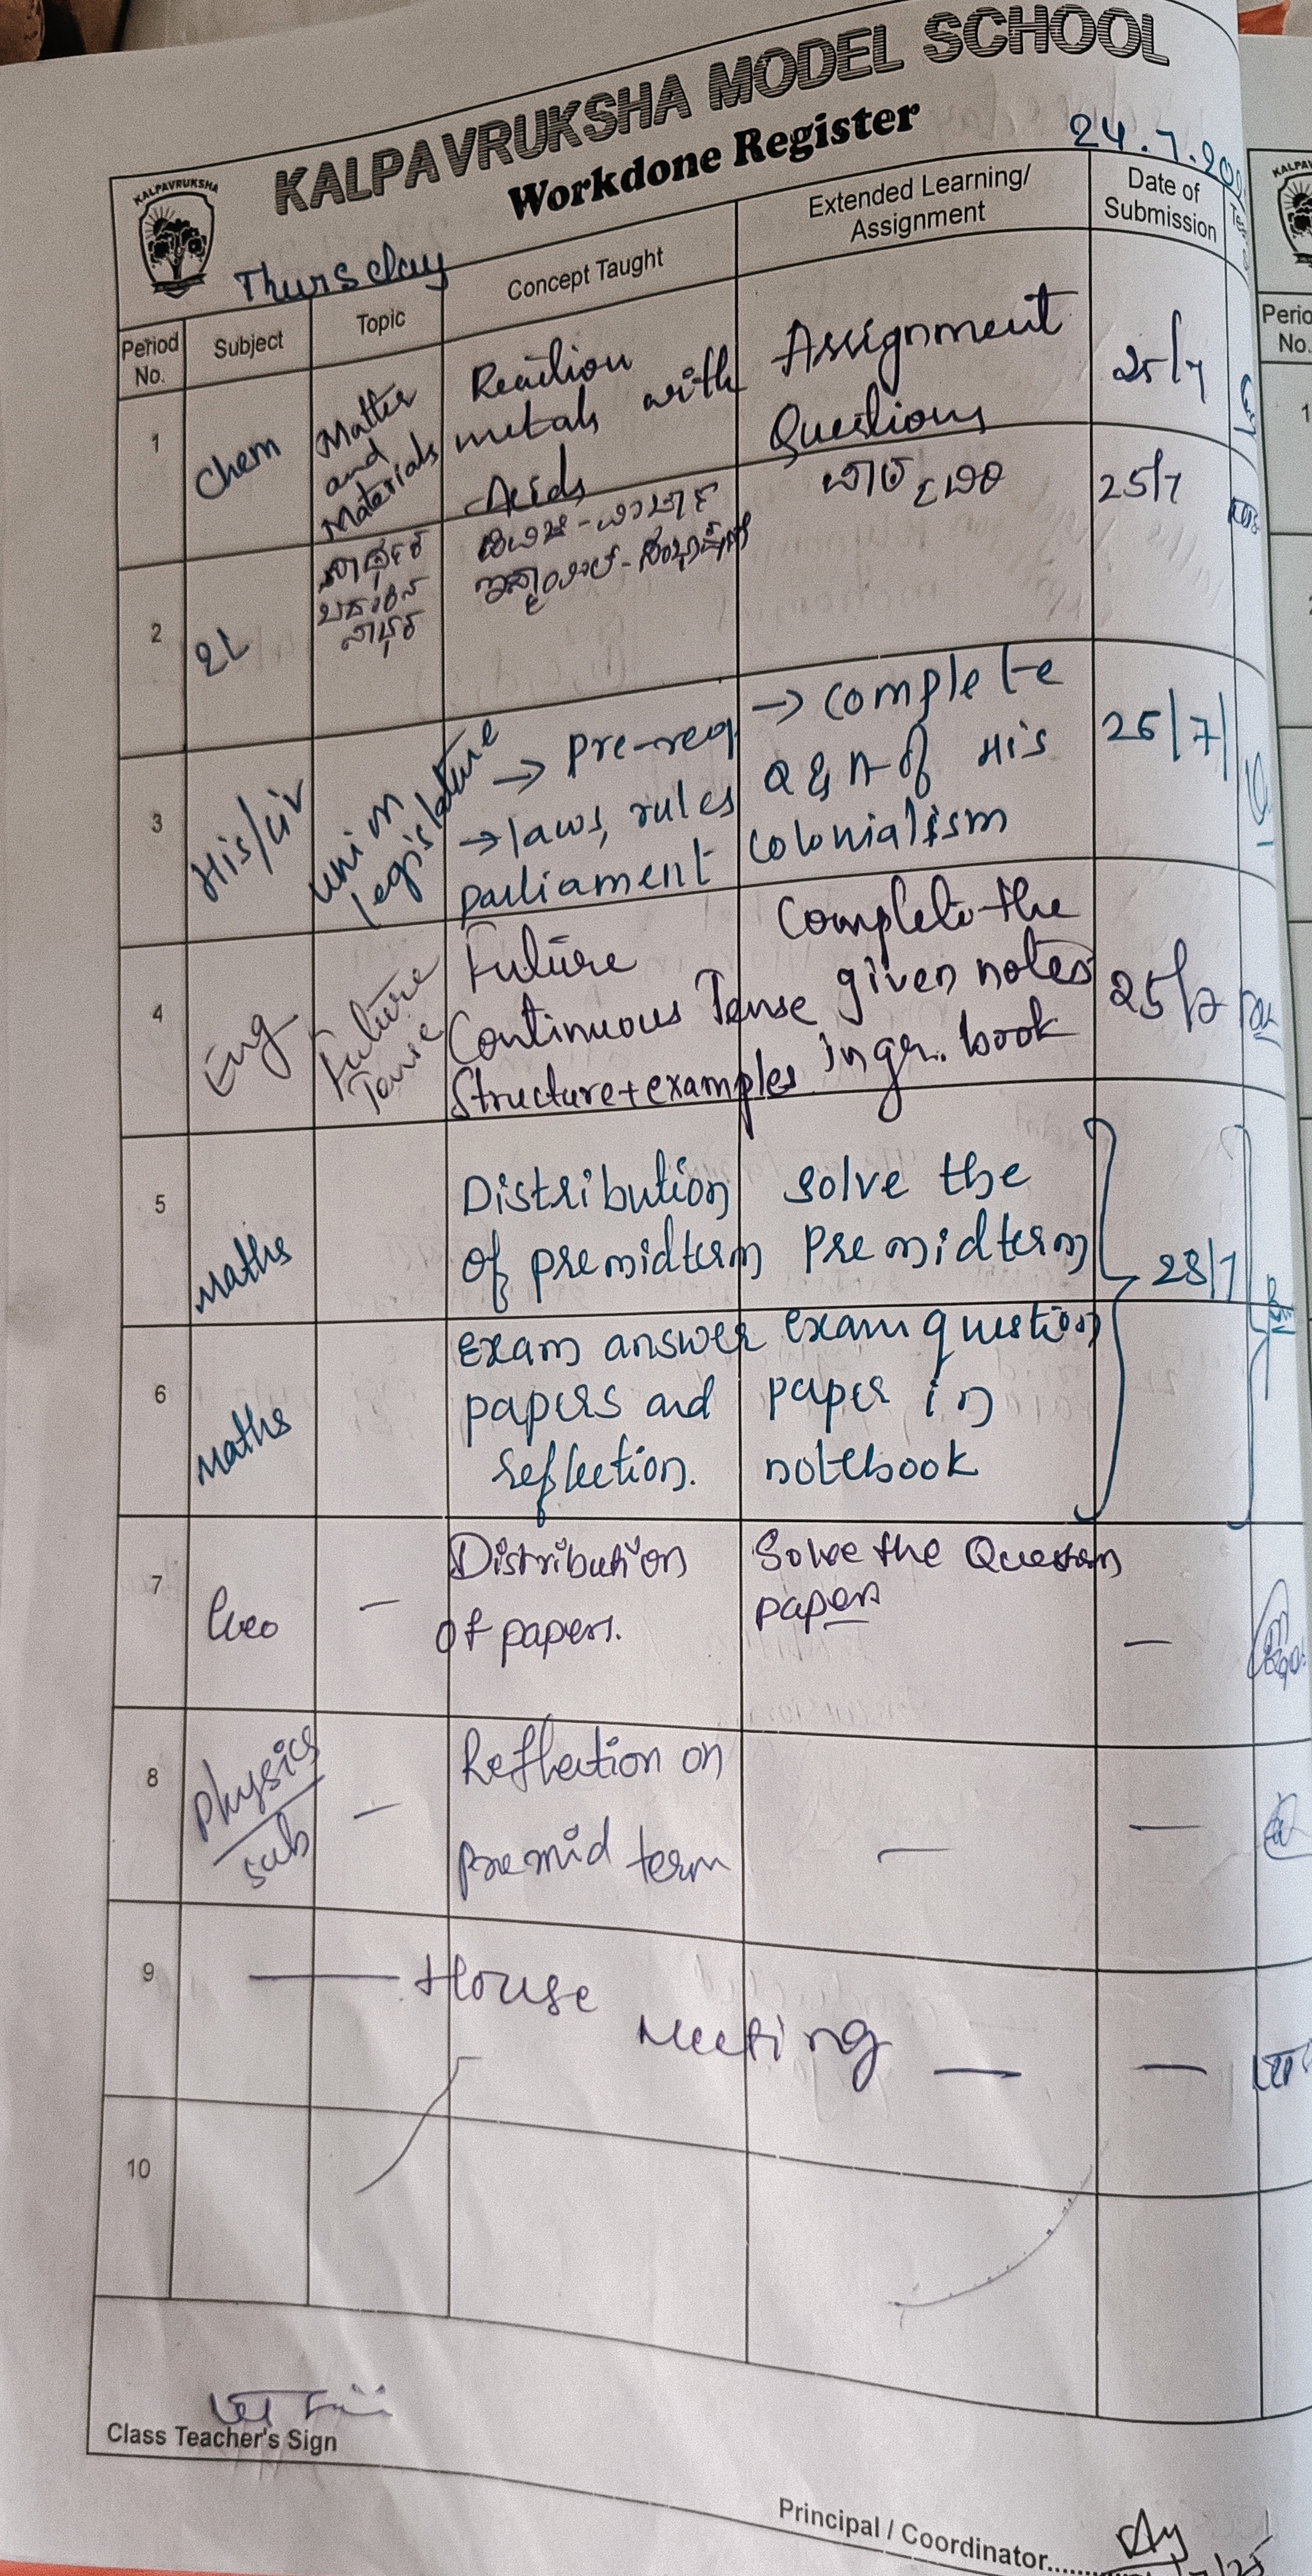 KALPAVRUKSHA MODEL SCHOOL
Workdone Register
24.7.20
KALPAVRUKSHA
Thursday
Period No.
Subject
Topic
Concept Taught
Extended Learning/
Assignment
Date of
Submission
1
Chem
Matter
and
Materials
Reaction
metals with
Acids
Assignment
Questions
25/7
2
2L
25/7
3
His/Civ
Union
legislature
→ pre-req
→ laws, rules
parliament
→ complete
Q & A of His
colonialism
25/7/
4
Eng
Future
Tense
Future
Continuous Tense
Structure + examples
Complete the
given notes
in gr. book
25/7
5
Maths
Distribution
of premidterm
solve the
premidterm
28/7
6
Maths
Exam answer
papers and
reflection.
exam question
paper in
notebook
7
Geo
—
Distribution
of papers.
Solve the Question
paper
—
8
Physics
sub
—
Reflection on
premid term
—
—
9
— House
Meeting —
—
10
Class Teacher's Sign
Principal / Coordinator......
Perio
No.
1